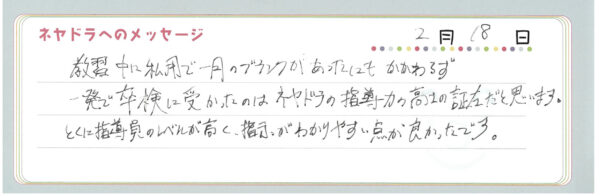 ネヤドラへのメッセージ 2月18日
教習中に私用で一月のブランクがあったにもかかわらず
一発で卒検に受かったのはネヤドラの指導力の高さの証左だと思います。
とくに指導員のレベルが高く、指示がわかりやすい点が良かったです。